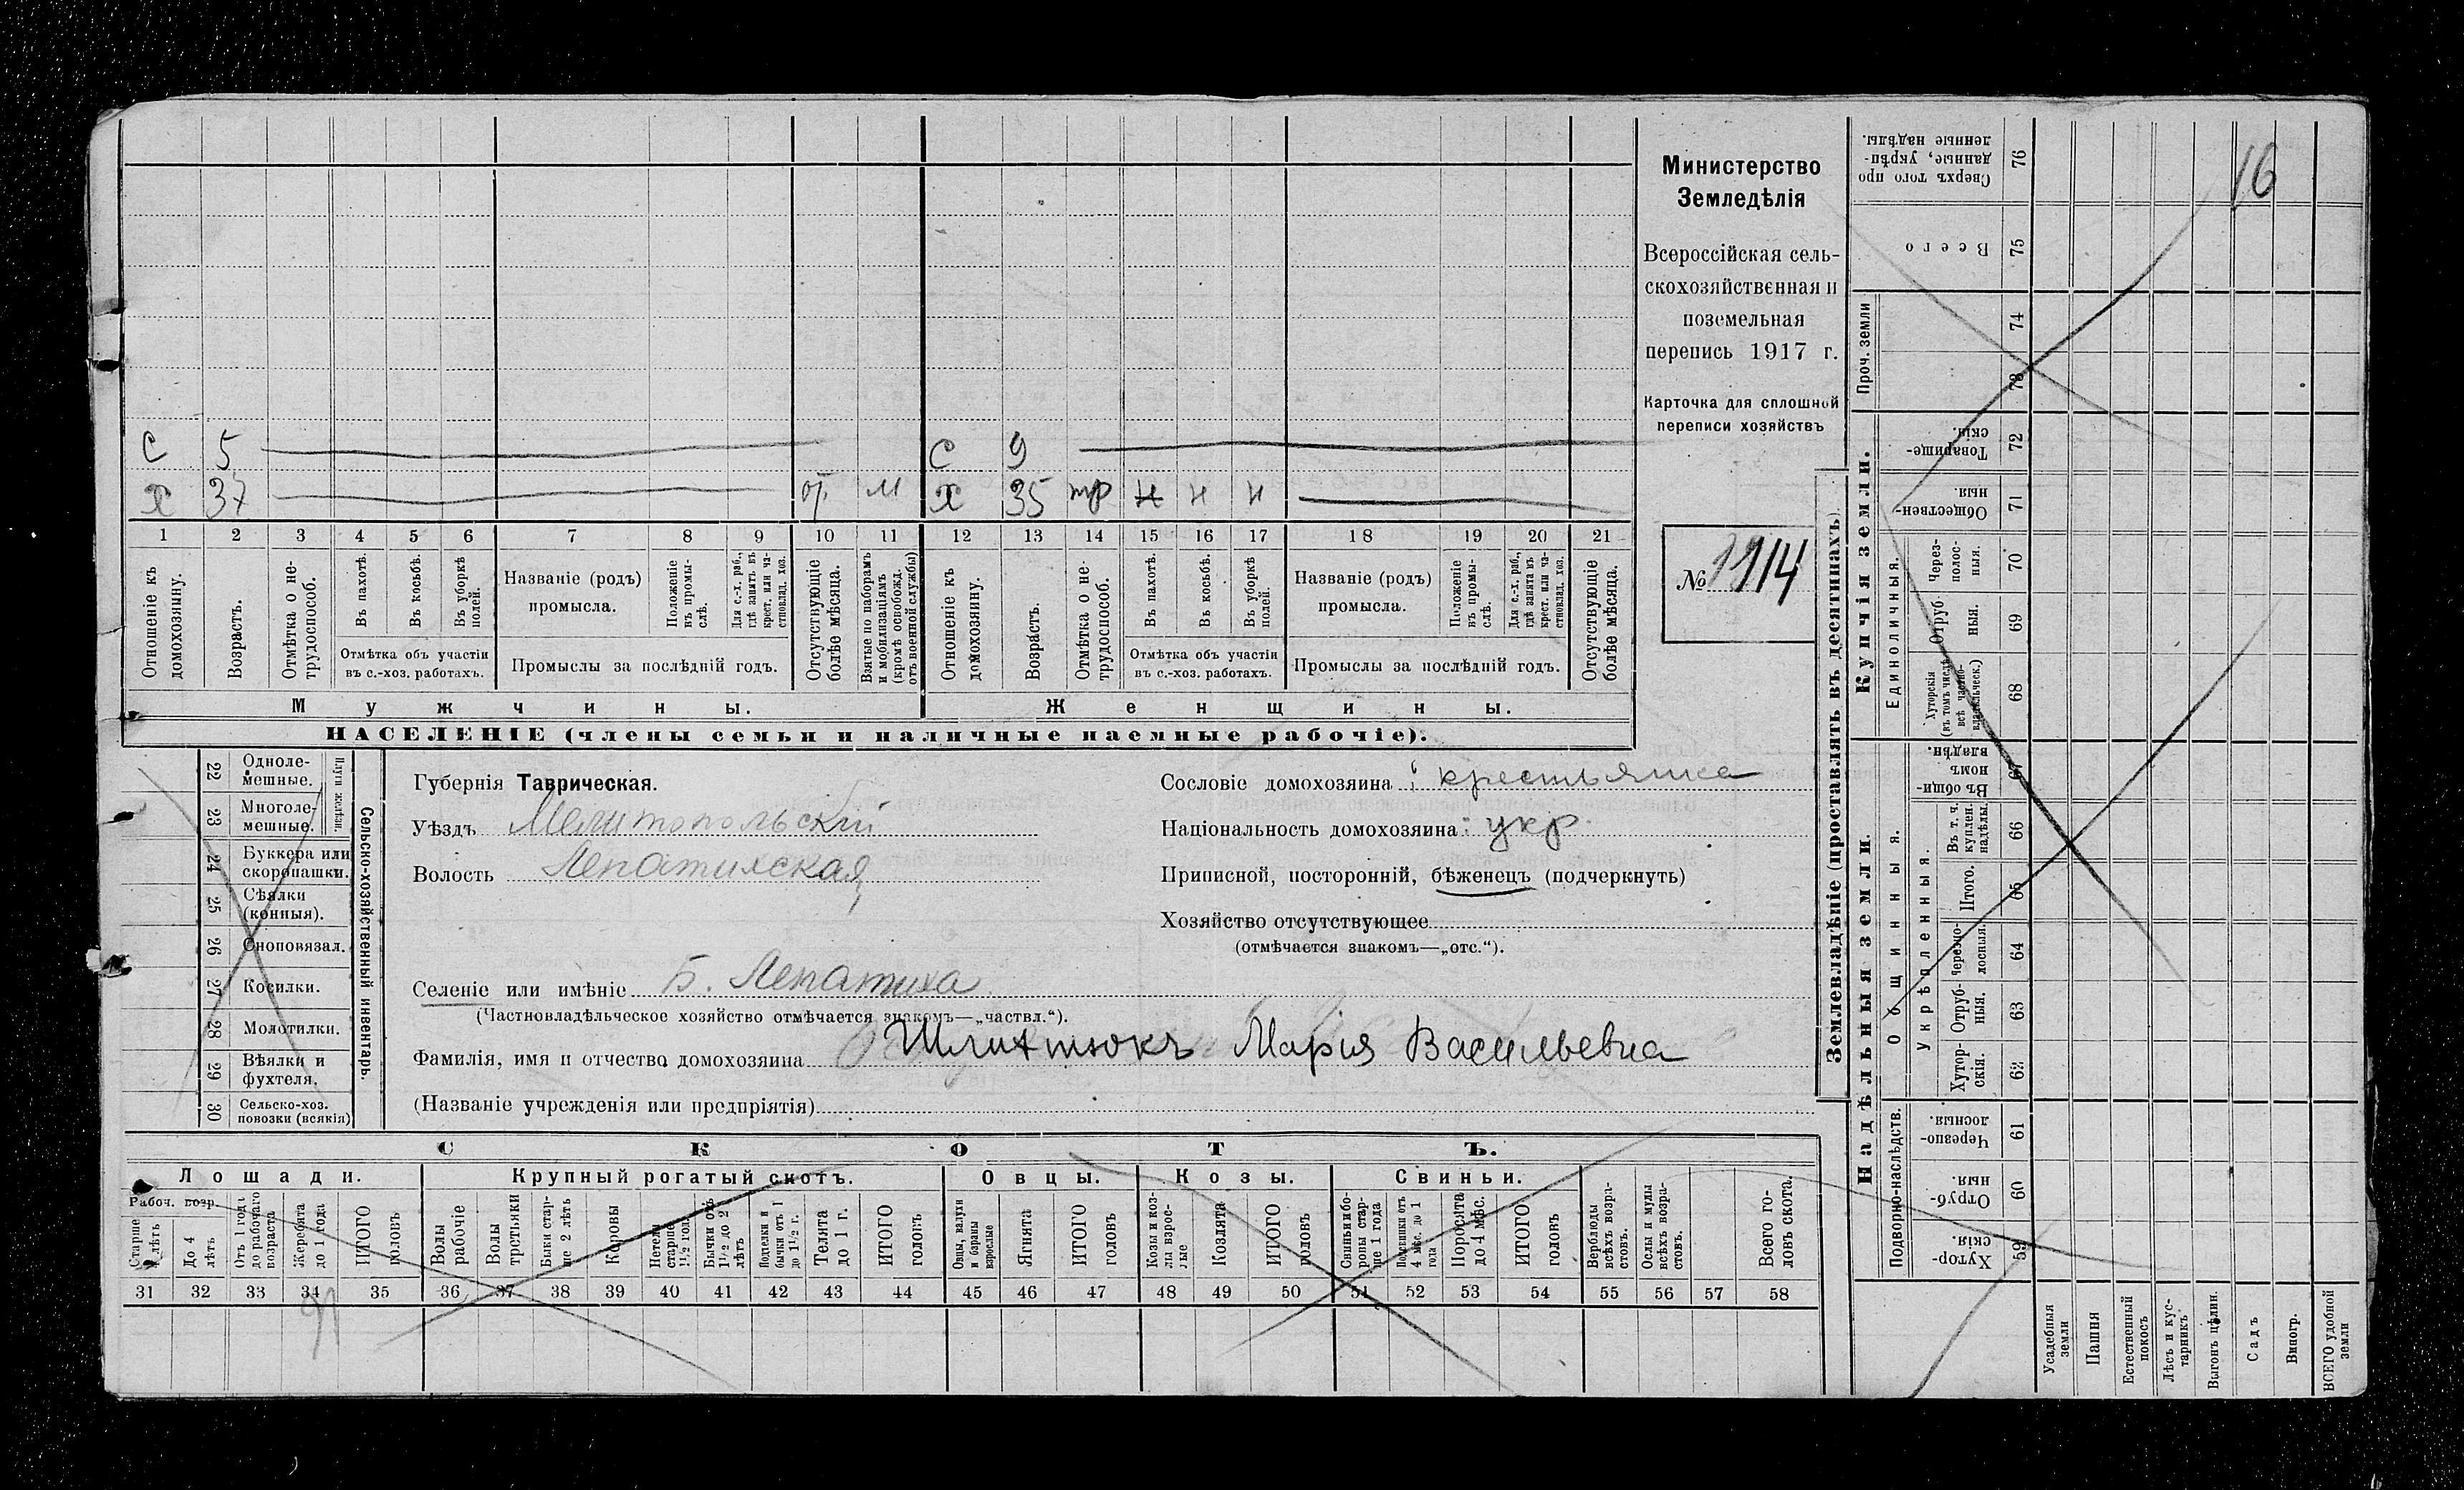 16
Министерство
Земледѣлія
Всероссійская сель-
скохозяйственная и
поземельная
перепись 1917 г.
Карточка для сплошной
переписи хозяйствъ
№ 114
С 5 С 9
Х 37 от М Х 35 тр н н н
1 2 3 4 5 6 7 8 9 10 11 12 13 14 15 16 17 18 19 20 21
Отношеніе къ домохозяину.
Возрастъ.
Отмѣтка о не-трудоспособ.
Въ пахотѣ.
Въ косьбѣ.
Въ уборкѣ полей.
Отмѣтка объ участіи
въ с.-хоз. работахъ.
Названіе (родъ)
промысла.
Положеніе въ промы-слѣ.
Для с.-х. раб., гдѣ занятъ въ крест. или ча-стновлад. хоз.
Промыслы за послѣдній годъ.
Отсутствующіе болѣе мѣсяца.
Взятые по наборамъ и мобилизаціямъ (кромѣ освобожд. отъ военной службы)
Отношеніе къ домохозяину.
Возрастъ.
Отмѣтка о не-трудоспособ.
Въ пахотѣ.
Въ косьбѣ.
Въ уборкѣ полей.
Отмѣтка объ участіи
въ с.-хоз. работахъ.
Названіе (родъ)
промысла.
Положеніе въ промы-слѣ.
Для с.-х. раб., гдѣ занята въ крест. или ча-стновлад. хоз.
Промыслы за послѣдній годъ.
Отсутствующіе болѣе мѣсяца.
Мужчины. Женщины.
НАСЕЛЕНІЕ (члены семьи и наличные наемные рабочіе).
22 Одноле-мешные.
23 Многоле-мешные.
Плуги желѣзн.
24 Буккера или скоропашки.
25 Сѣялки (конныя).
26 Сноповязал.
27 Косилки.
28 Молотилки.
29 Вѣялки и фухтеля.
30 Сельско-хоз. повозки (всякія)
Сельско-хозяйственный инвентарь.
Губернія Таврическая.
Уѣздъ Мелитопольскій
Волость Лепатихская
Селеніе или имѣніе Б. Лепатиха
(Частновладѣльческое хозяйство отмѣчается знакомъ—„частвл.“).
Фамилія, имя и отчество домохозяина Марія Васильевна
(Названіе учрежденія или предпріятія)
Сословіе домохозяина: крестьянка
Національность домохозяина: укр.
Приписной, посторонній, бѣженецъ (подчеркнуть)
Хозяйство отсутствующее
(отмѣчается знакомъ—„отс.“).
СКОТЪ.
Лошади. Крупный рогатый скотъ. Овцы. Козы. Свиньи.
Рабоч. возр.
Старше 4 лѣтъ
До 4 лѣтъ
Отъ 1 года до рабочаго возраста
Жеребята до 1 года
ИТОГО головъ
Волы рабочіе
Волы третьяки
Быки стар-ше 2 лѣтъ
Коровы
Нетели старше 1½ год.
Бычки отъ 1½ до 2 лѣтъ
Подтелки и бычки отъ 1 до 1½ г.
Телята до 1 г.
ИТОГО головъ
Овцы, валухи и бараны взрослые
Ягнята
ИТОГО головъ
Козы и коз-лы взрос-лые
Козлята
ИТОГО головъ
Свиньи и бо-ровы стар-ше 1 года
Подсвинки отъ 4 мѣс. до 1 года
Поросята до 4 мѣс.
ИТОГО головъ
Верблюды всѣхъ возра-стовъ.
Ослы и мулы всѣхъ возра-стовъ.
Всего го-ловъ скота.
31 32 33 34 35 36 37 38 39 40 41 42 43 44 45 46 47 48 49 50 51 52 53 54 55 56 57 58
Землевладѣніе (проставлять въ десятинахъ)
Надѣльныя земли.
Купчія земли.
Проч. земли
Подворно-наслѣдств.
Общинныя.
Укрѣпленныя.
Единоличныя.
Сверхъ того про данные, укрѣп-ленные надѣлы. 76
Всего 75
74
73
Товарище-скія. 72
Обществен-ныя. 71
Через-полос-ныя. 70
Отруб-ныя. 69
Хуторскія (въ томъ числѣ всѣ частно-владѣльческ.) 68
Въ общи-номъ владѣн. 67
Въ т. ч. куплен. надѣлы. 66
Итого. 65
Черезпо-лосныя. 64
Отруб-ныя. 63
Хутор-скія. 62
Черезпо-лосныя. 61
Отруб-ныя. 60
Хутор-скія. 59
Усадебныя земли
Пашня
Естественный покосъ
Лѣсъ и кус-тарникъ
Выгонъ цѣлин.
Садъ
Виногр.
ВСЕГО удобной земли